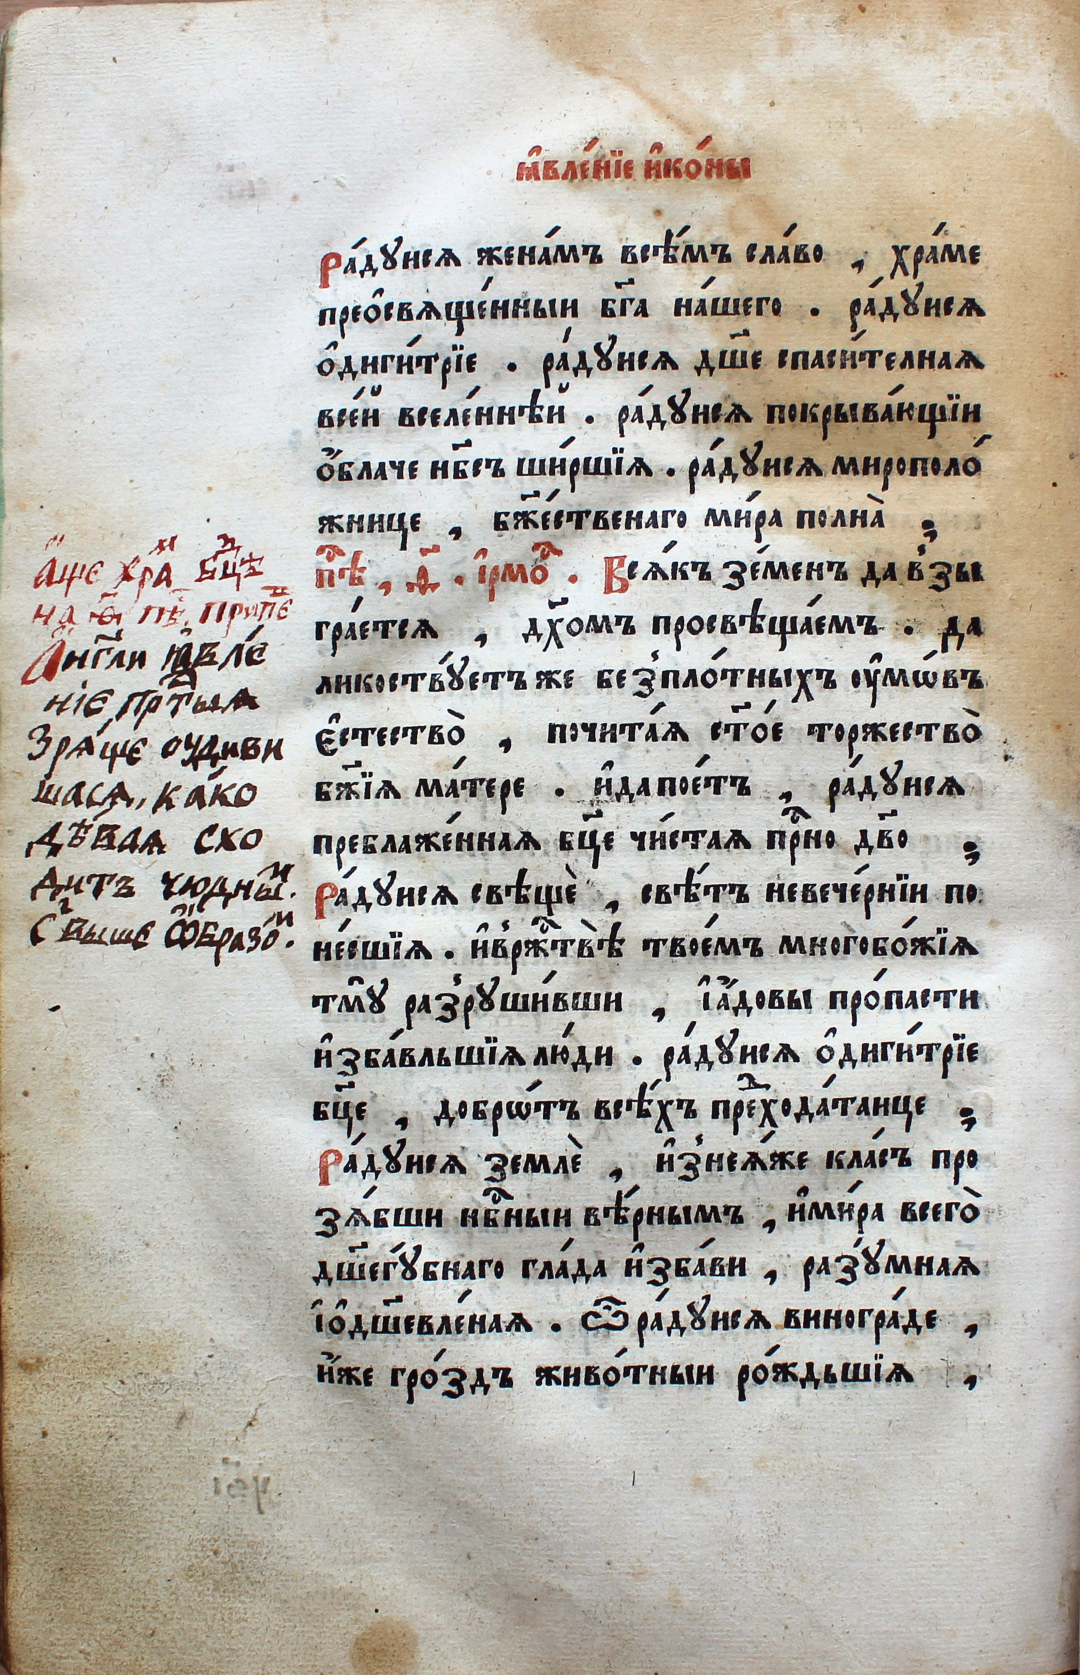 ꙗ҆вле́нїе и҆ко́ны
Ра́дꙋисѧ жена́мъ всѣ́мъ сла́во , хра́ме
прео҆свѧще́нныи бг҃а на́шего . ра́дꙋисѧ
о҆диги́трїе . ра́дꙋисѧ дш҃е спаси́телнаѧ
все́й вселе́ннѣй . ра́дꙋисѧ покрыва́ющїи
о҆́блаче нб҃съ ши́ршїѧ . ра́дꙋисѧ мирополо́
жнице , бж҃е́ственаго ми́ра полна̀ ;
пⷭ҇ѣ , д҃ . і҆рмоⷭ҇ . Всѧ́къ зе́менъ да вз̾ы
гра́етсѧ , дх҃омъ просвѣща́емъ . да
ликоствꙋ́етъже без̾пло́тныхъ ᲂу҆мѡ́въ
є҆стество̀ , почита́ѧ ст҃о́е торжество̀
бж҃їѧ ма́тере . и҆дапое́тъ , ра́дꙋисѧ
преблаже́ннаѧ бц҃е чи́стаѧ прⷭ҇но дв҃о ;
Ра́дꙋисѧ свѣщѐ , свѣ́тъ невече́рнїи по
не́сшїѧ . и҆в̾ржⷭ҇твѣ̀ твое́мъ многобо́жїѧ
тмꙋ̀ раз̾рꙋши́вши , і҆а҆́довы про́пасти
и҆зба́вльшїѧ лю́ди . ра́дꙋисѧ о҆диги́трїе
бц҃е , добрѡ́тъ всѣ́хъ преⷣхода́таице ;
Ра́дꙋисѧ землѐ , и҆з̾неѧ́же кла́съ про
зѧ́бши нбⷭ҇ныи вѣ́рнымъ , и҆ми́ра всего̀
дш҃егꙋ́бнаго гла́да и҆зба́ви , разꙋ́мнаѧ
і҆о҆дш҃евле́наѧ . ѽ ра́дꙋисѧ виногра́де ,
и҆́же гро́здъ живо́тныи ро́ждьшїѧ ,
А́ще храⷨ бцⷣѣ
на ѳ҃ пѣ, припⷭ҇є
А҆́нг҃ли ꙗ҆влє́
нїє пртⷭ҇ыѧ
Зрѧ́щє оудиви
шасѧ, ка́ко
Дѣ́ваѧ схо
дитъ чюдныⷨ.
Свышє ѻбразоⷨ.